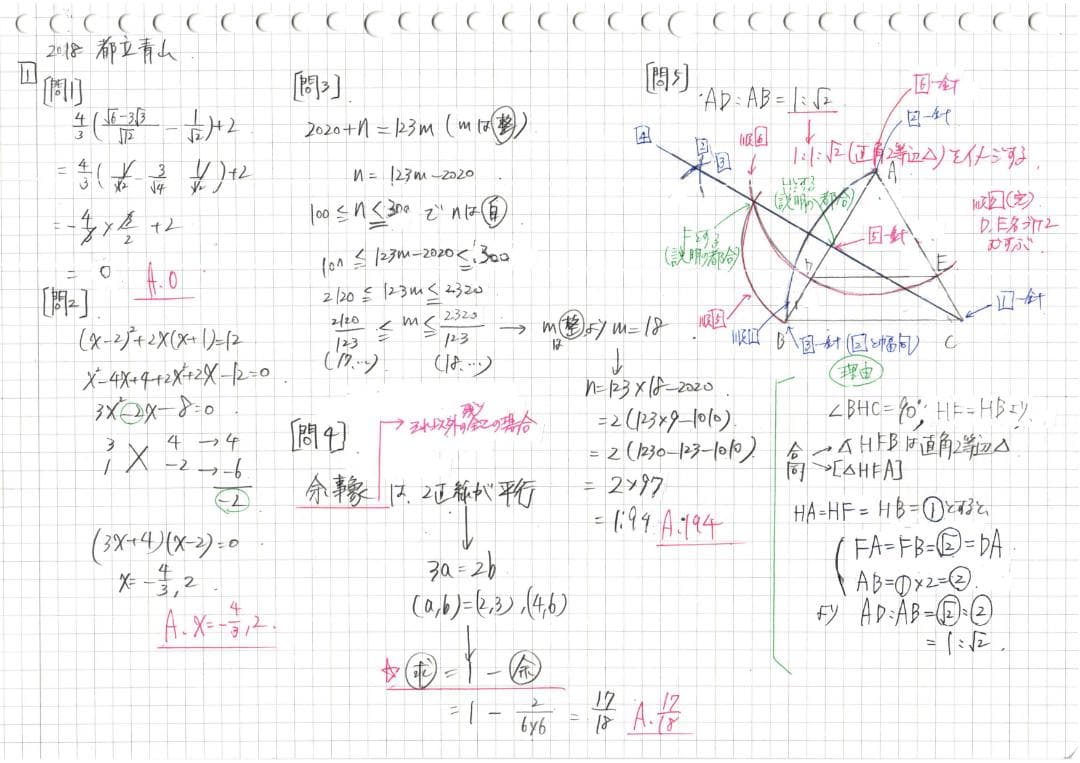 2018 都立青山
1
[問1]
4/3(√6-3√3/√12 - 1/√2)+2
= 4/3(1/√2 - 3/√4 - 1/√2)+2
= -4/3×3/2 +2
= 0
A.0
[問2]
(x-2)²+2x(x+1)=12
x²-4x+4+2x²+2x-12=0
3x²-2x-8=0
3 4 → 4
1 -2 → -6
-2
(3x+4)(x-2)=0
x=-4/3, 2
A. x=-4/3, 2.
[問3]
2020+n=123m (mは整)
n=123m-2020
100≦n≦300 で nは自
100≦123m-2020≦300
2120≦123m≦2320
2120/123≦m≦2320/123 → mは整よりm=18
(17,...) (18,...)
n=123×18-2020
=2(123×9-1010)
=2(1230-123-1010)
=2×97
=194 A.194
[問4]
それ以外の残り全ての場合
余事象は、2直線が平行
3a=2b
(a,b)=(2,3),(4,6)
☆求=1-余
=1-2/6×6=17/18 A.17/18
[問5]
AD:AB=1:√2
1:1:√2(直角2等辺△)をイメージする
6-針
2-針
4
2
3
順6
Hとする
(説明の都合)
A
順2(定)
D,E名づけて
むすぶ
Fとする
(説明の都合)
5-針
D
E
1-針
順5
順1
B
3-針(2と幅同)
C
理由
∠BHC=90°,HF=HBより
合同
→△HFBは直角2等辺△
→[△HFA]
HA=HF=HB=①とすると
FA=FB=√2=DA
AB=①×2=②
より AD:AB=√2:②
=1:√2.